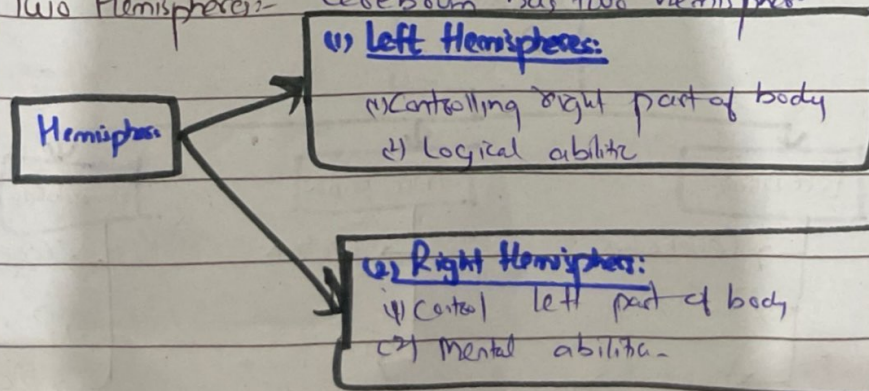 Two Hemisphere:- Cerebrum has two Hemisphe
Hemisphere
(1) Left Hemispheres:
(1) Controlling right part of body
(2) Logical abilitie
(2) Right Hemisphere:
(1) Control left part of body
(2) Mental abilitie.